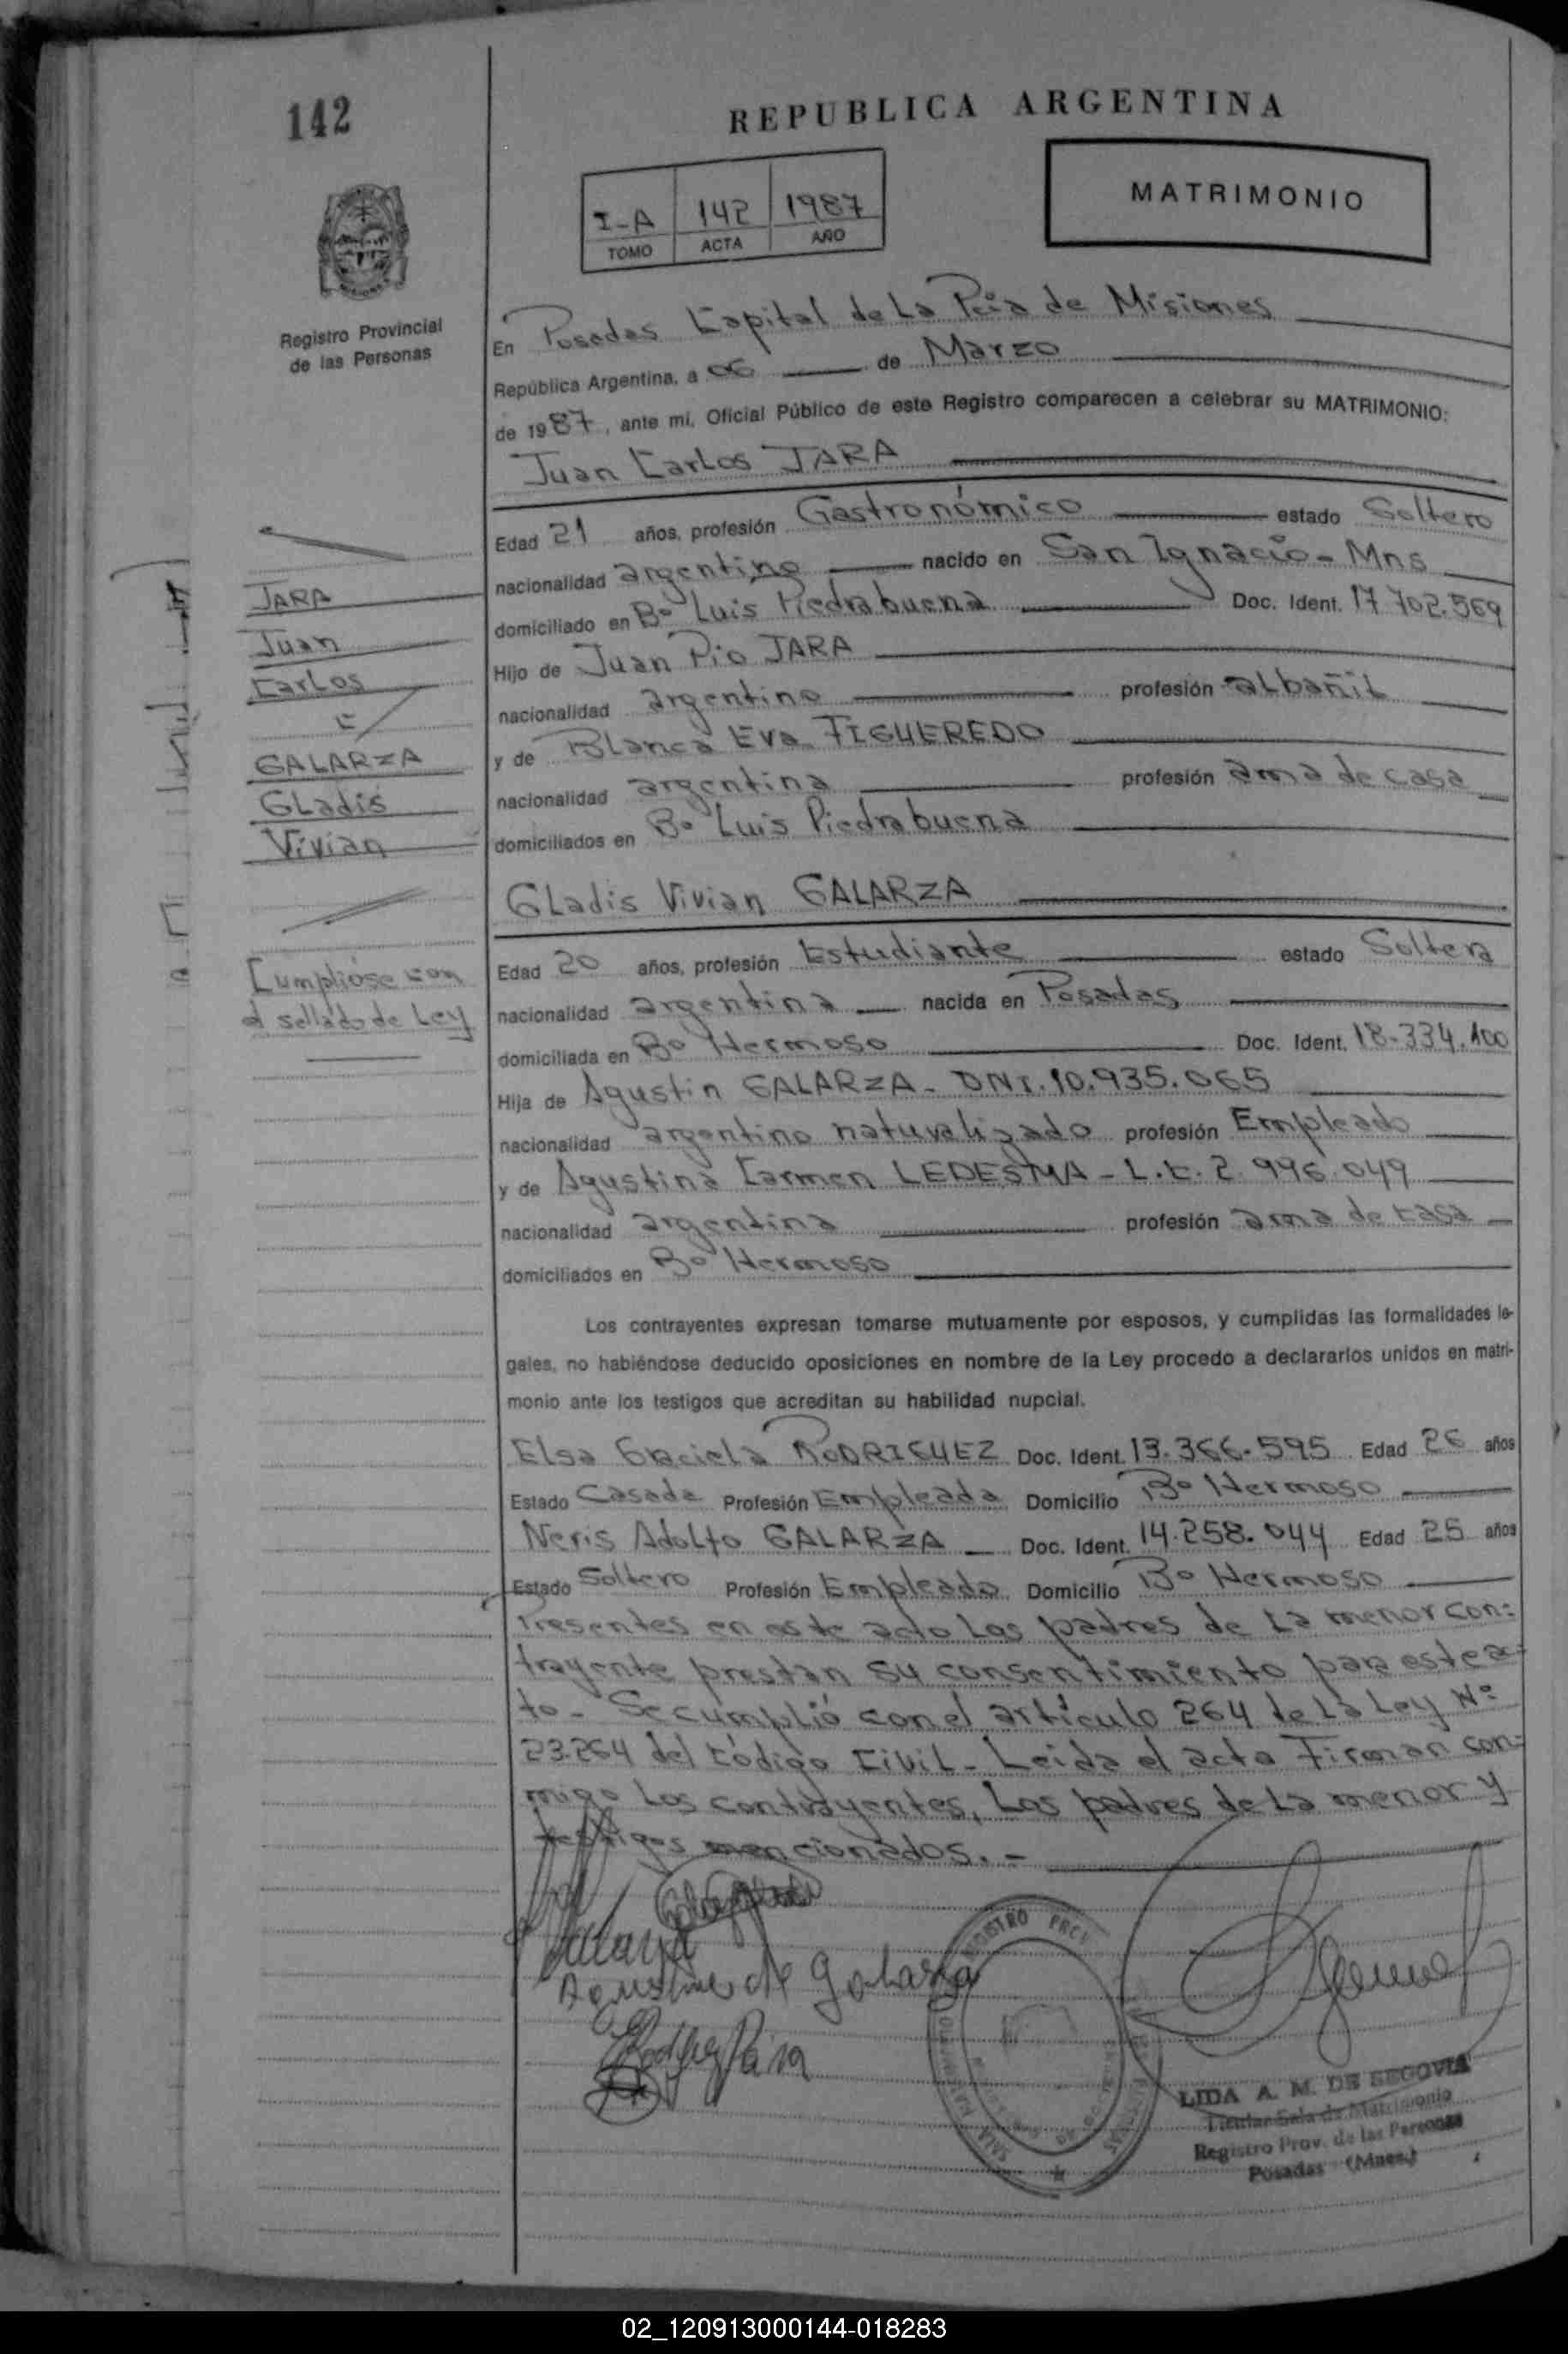 142
REPUBLICA ARGENTINA
MATRIMONIO
I-A 142 1987
TOMO ACTA AÑO
Registro Provincial
de las Personas
En Posadas Capital de La Pcia de Misiones
República Argentina, a 06 de Marzo
de 1987, ante mi, Oficial Público de este Registro comparecen a celebrar su MATRIMONIO:
Juan Carlos JARA
Edad 21 años, profesión Gastronómico estado Soltero
nacionalidad argentino nacido en San Ignacio - Mns
domiciliado en Bº Luis Piedrabuena Doc. Ident. 17.702.569
Hijo de Juan Pio JARA
nacionalidad argentino profesión albañil
y de Blanca Eva FIGUEREDO
nacionalidad argentina profesión ama de casa
domiciliados en Bº Luis Piedrabuena
JARA
Juan
Carlos
c/
GALARZA
Gladis
Vivian
Cumplióse con
el sellado de Ley
Gladis Vivian GALARZA
Edad 20 años, profesión Estudiante estado Soltera
nacionalidad argentina nacida en Posadas
domiciliada en Bº Hermoso Doc. Ident. 18.334.100
Hija de Agustin GALARZA - DNI. 10.935.065
nacionalidad argentino naturalizado profesión Empleado
y de Agustina Carmen LEDESMA - L.C. 2.996.049
nacionalidad argentina profesión ama de casa
domiciliados en Bº Hermoso
Los contrayentes expresan tomarse mutuamente por esposos, y cumplidas las formalidades le-
gales, no habiéndose deducido oposiciones en nombre de la Ley procedo a declararlos unidos en matri-
monio ante los testigos que acreditan su habilidad nupcial.
Elsa Graciela RODRIGUEZ Doc. Ident. 13.366.595 Edad 26 años
Estado Casada Profesión Empleada Domicilio Bº Hermoso
Neris Adolfo GALARZA Doc. Ident. 14.258.044 Edad 25 años
Estado Soltero Profesión Empleado Domicilio Bº Hermoso
Presentes en este acto los padres de la menor con-
trayente prestan su consentimiento para este ac-
to - Se cumplió con el artículo 264 de la Ley Nº
23.264 del Código Civil - Leida el acta Firman con-
migo los contrayentes, los padres de la menor y
testigos mencionados. -
Galarza
Agustina de Galarza
LIDA A. M. DE SEGOVIA
Titular Sala de Matrimonio
Registro Prov. de las Personas
Posadas (Mnes.)
02_120913000144-018283